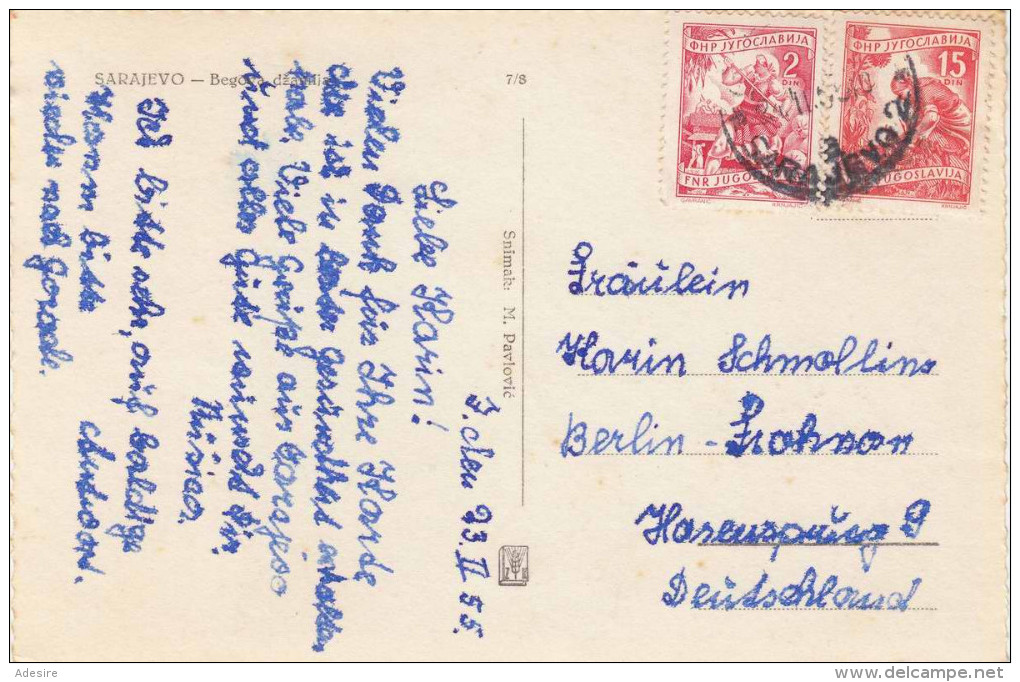 SARAJEVO — Begova džamija
7/8
ФНР ЈУГОСЛАВИЈА
2
DIN
FNR JUGOSLAVIJA
ФНР ЈУГОСЛАВИЈА
15
DIN
FNR JUGOSLAVIJA
SARAJEVO 2
Snimak: M. Pavlović
J. den 23. II 55.
Liebe Karin!
Vielen Dank für Ihre Karte
die ich in bester Gesundheit erhalten
habe. Viele Grüße aus Sarajevo
und alles Gute wünscht Dir
Ich bitte sehr, auf baldige
Antwort.
Wann bitte
Fräulein
Karin Schmolling
Berlin - Frohnau
Hasensprung 9
Deutschland
Adesire
www.delcampe.net